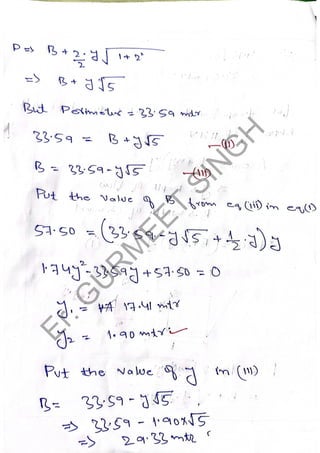 P => B + 2/2 · y √1+2²
=> B + y√5
But Perimeter = 33.59 mtr
33.59 = B + y√5 —(II)
B = 33.59 - y√5 —(III)
Put the value of B from eq (III) in eq (I)
57.50 = (33.59 - y√5 + 1/2 · y) y
1.74y² - 33.59y + 57.50 = 0
y₁ = 17.41 mtr
y₂ = 1.90 mtr ✓
Put the value of y in (III)
B = 33.59 - y√5
=> 33.59 - 1.90×√5
=> 29.33 mtr
Er. GURMEET SINGH